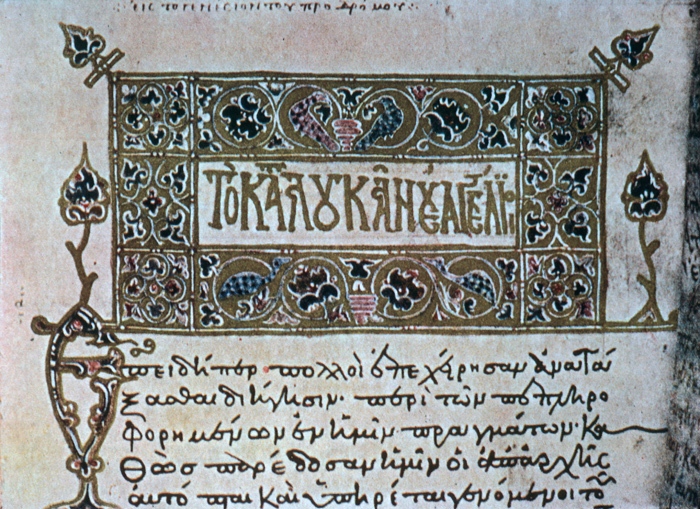 εις το γενεσιον του προδρόμου
Τὸ ΚΑΤΑ ΛΟΥΚᾶΝ ΕΥΑΓΓΕΛΙΟΝ
Ἐπειδήπερ πολλοὶ ἐπεχείρησαν ἀνατά
ξασθαι διήγησιν· περὶ τῶν πεπληρο
φορημένων ἐν ἡμῖν πραγμάτων· Κα
θὼς παρέδοσαν ἡμῖν οἱ ἀπαρχῆς
αὐτόπται καὶ ὑπηρέται γενόμενοι τοῦ